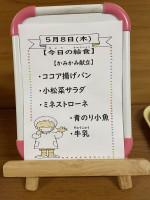 5月8日(木)
【今日の給食】
【かみかみ献立】
・ココア揚げパン
・小松菜サラダ
・ミネストローネ
・青のり小魚
・牛乳